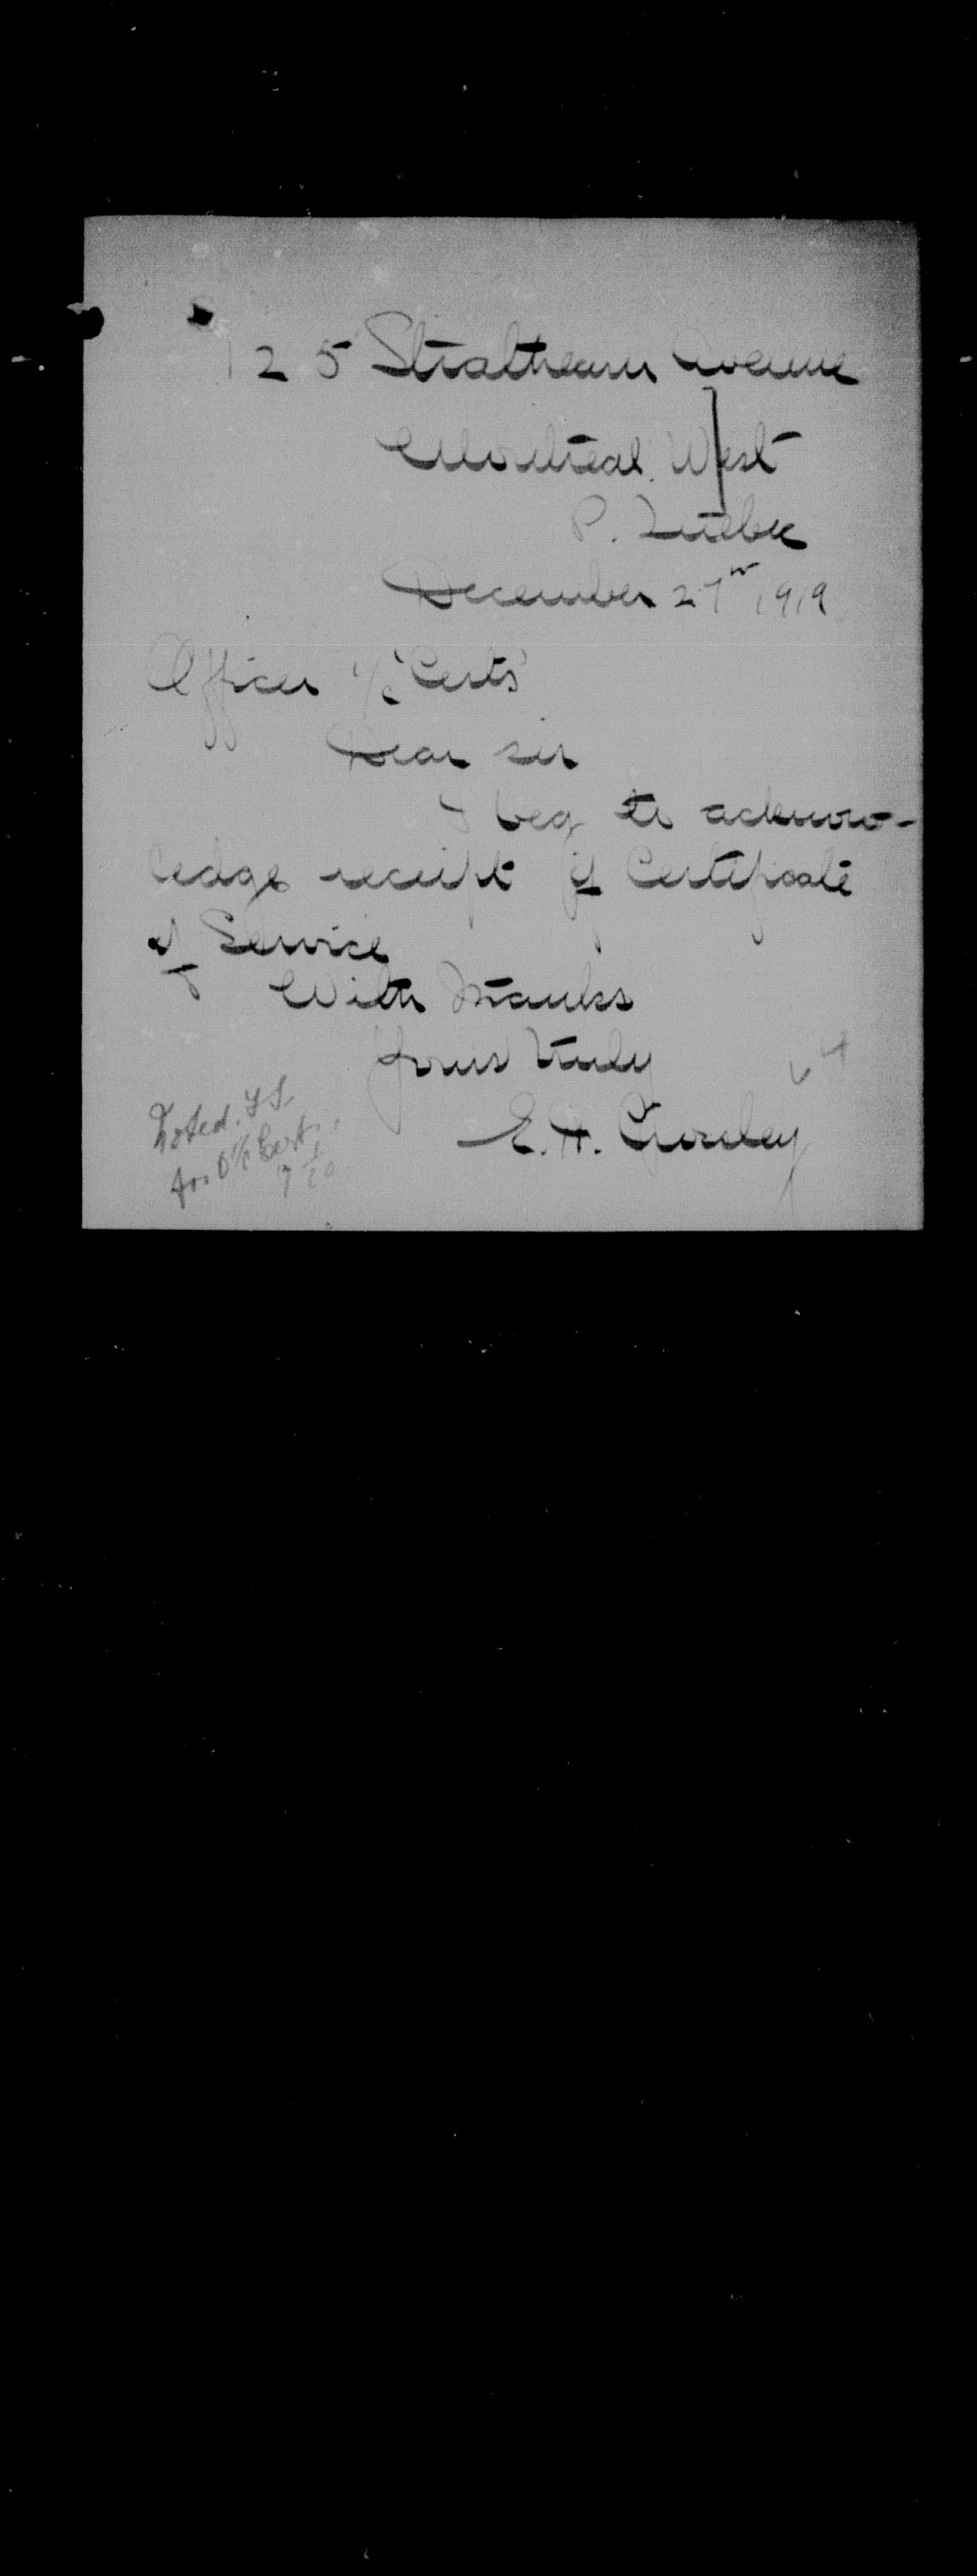 125 Strathearn Avenue
Montreal. West
P. Quebec
December 27th 1919
Officer i/c 'Certs'
Dear sir
I beg to acknow-
ledge receipt of Certificate
of Service
With Thanks
Yours truly
E. H.
Noted.
for O i/c Cert.